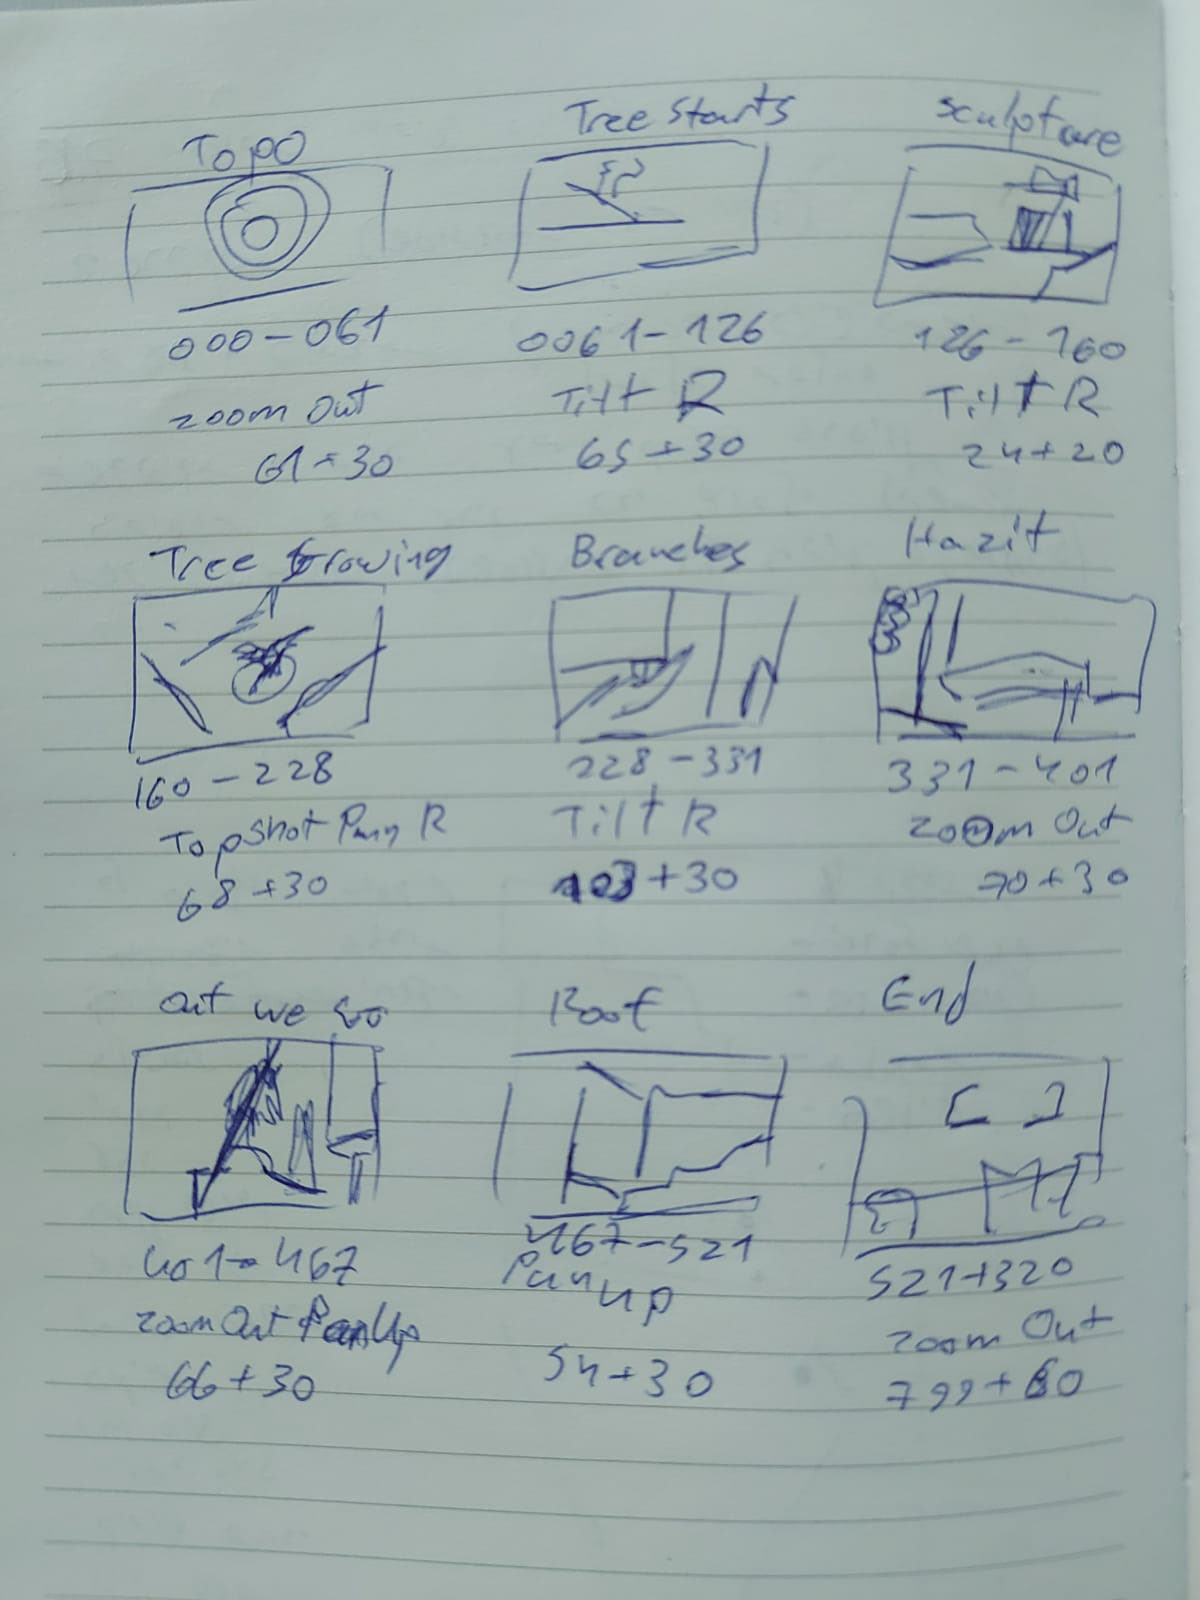 Topo
000-061
zoom out
61+30
Tree Starts
0061-126
Tilt R
65+30
Sculpture
126-160
Tilt R
24+20
Tree Growing
160-228
Top shot Pan R
68+30
Branches
228-331
Tilt R
103+30
Hazit
331-401
Zoom Out
70+30
Out we Go
401-467
Zoom Out Pan Up
66+30
Roof
467-521
Pan up
54+30
End
521+320
Zoom Out
799+60